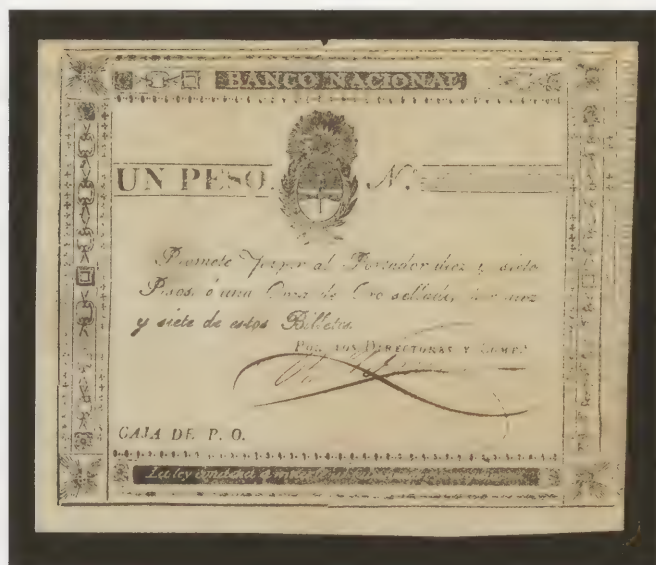 BANCO NACIONAL
UN PESO. N.
Promete pagar al Portador diez y siete
Pesos, ó una Onza de Oro sellado, por diez
y siete de estos Billetes.
POR LOS DIRECTORAS Y COMP.
CAJA DE P. O.
La ley condena á